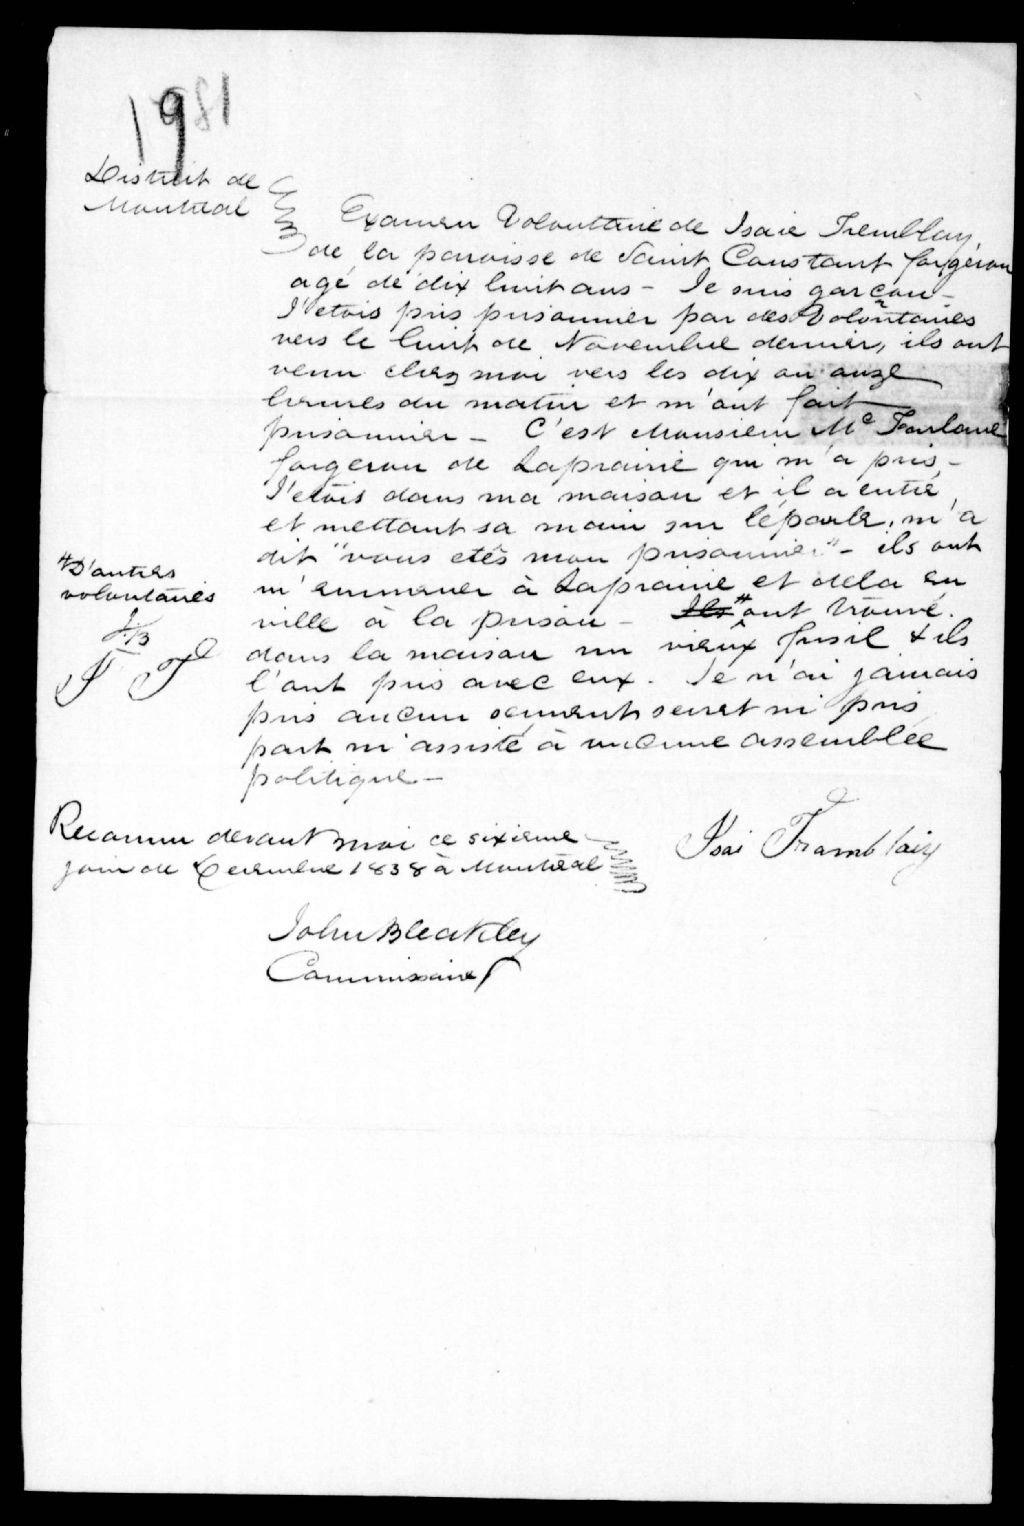 1981
District de
Montreal
Examen Volontaire de Isaie Tremblay
de la paroisse de Saint Constant forgéron
agé de dix huit ans - Je suis garçon -
J'etois pris prisonnier par des Volontaires
vers le huit de Novembre dernier, ils ont
venu chez moi vers les dix ou onze
heures du matin et m'ont fait
prisonnier - C'est Monsieur Mc Farlane
forgeron de Laprairie qui m'a pris -
J'etois dans ma maison et il a entré,
et mettant sa main sur l'épaule, m'a
dit "vous etês mon prisonnier" - ils ont
m'emmener à Laprairie et dela en
ville à la prison - Ils # ont trouvé
dans la maison un vieux fusil & ils
l'ont pris avec eux. Je n'ai jamais
pris aucun serment secret ni pris
part ni assisté à aucune assemblée
politique -
# D'autres
volontaires
JB
J T
Reconnu devant moi ce sixieme
jour de Decembre 1838 à Montréal
Isai Tramblaiy
John Bleakley
Commissaire